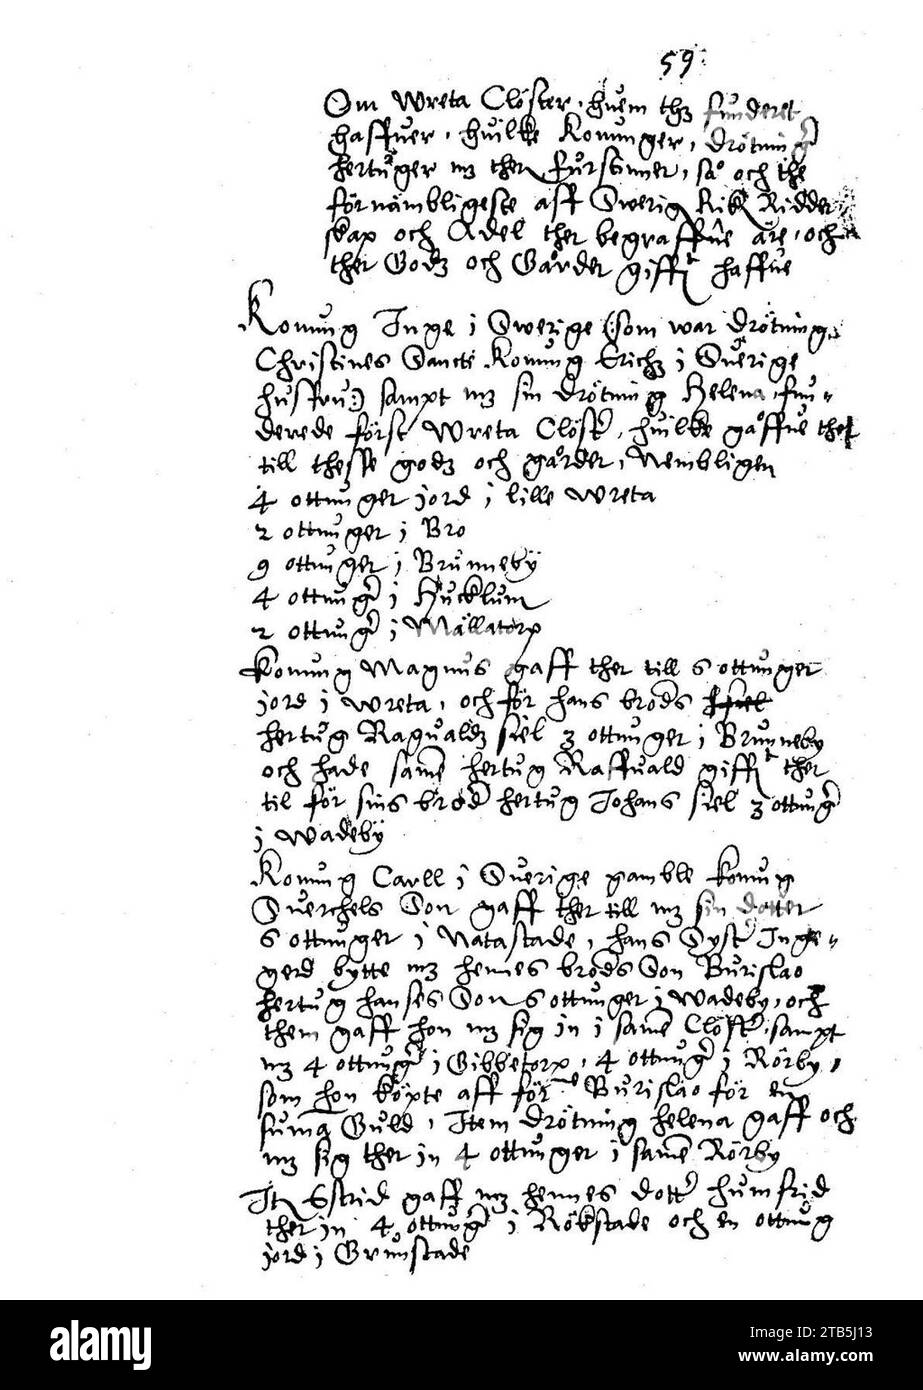 59.
Om Wreta Clöster, huem thz funderet
haffuer, huilke Konunger, drötning
hertuger mz ther furstinner, så och the
förnämbligeste aff Swerig Rikz Ridder
skap och Adel ther begraffne äre, och
ther Godz och Gårder giffit haffue
Konung Inge i Swerige (som war drötning
Christines Sancti Konung Erichz i Suerige
husfru:) sampt mz sin drötning Helena fun
derede först Wreta Clöster, huilke gåffue ther
till thesse godz och gårder, Nembligen
4 ottunger jord i lille Wreta
2 ottunger i Bro
9 ottunger i Brunneby
4 ottung i Hucklum
2 ottung i Mällatorp
Konung Magnus gaff ther till 6 ottunger
jord i Wreta, och för hans broders
hertug Ragualdz siel 3 ottunger i Brunneby
och hade samme hertug Raffuald giffit ther
til för sins broder hertug Johans siel 3 ottung
i Wadeby
Konung Carll i Suerige gamble konung
Suerchels Son gaff ther till mz sin dotter
6 ottunger i Natastade, hans Syster Inge
gerd bytte mz hennes broders Son Burislao
hertug hanses Son 6 ottunger i Wadeby, och
them gaff hon mz sig in i samme Clöster, sampt
mz 4 ottung i Gibbetorp, 4 ottung i Rörby,
som hon köpte aff för:ne Burislao för en
summa Guld, Item drötning helena gaff och
mz sig ther in 4 ottunger i samme Rörby
It Estrid gaff mz hennes dotter humfrid
ther in 4 ottung i Rökstade och en ottung
jord i Grunstade
alamy
Image ID: 2TB5J13
www.alamy.com